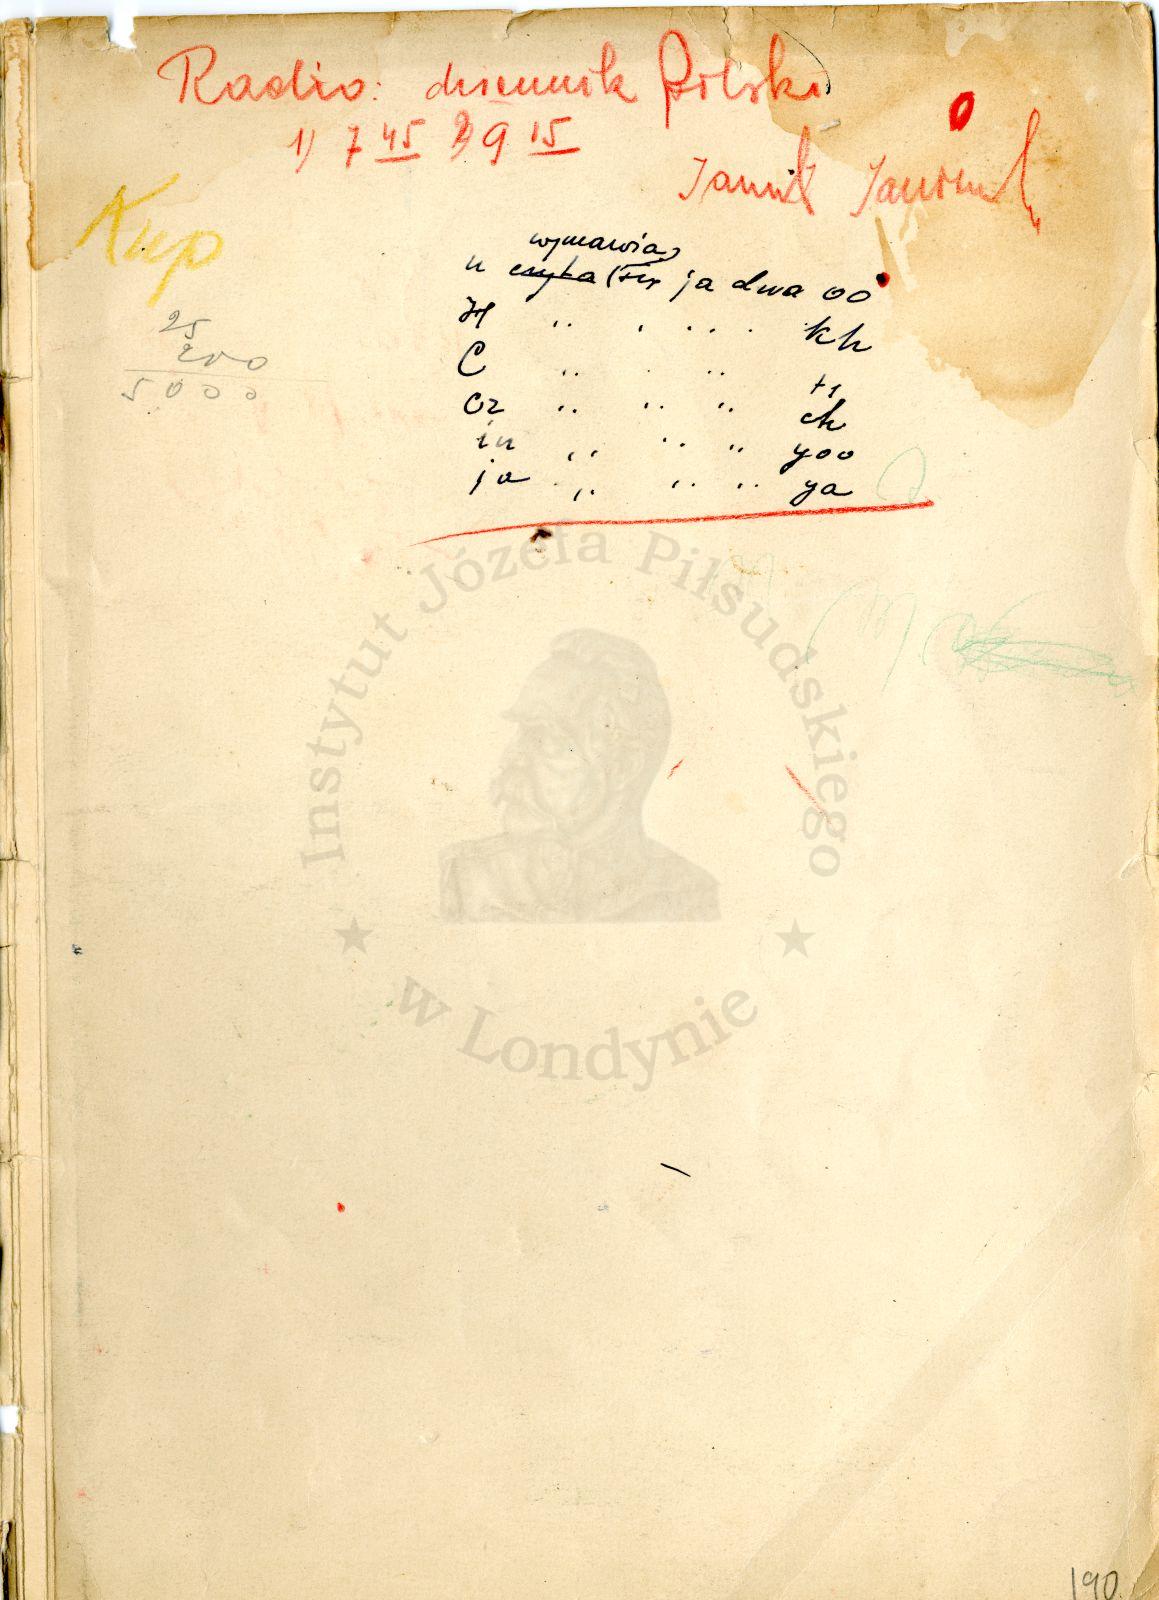 Radio: dziennik Polski
1) 7 45 2) 9 15
Kup
wymawia
u czyta się ja dwa oo
H " " " kh
C " " " ts
cz " " " ch
iu " " " yoo
ja " " " ya
25
200
5000
Instytut Józefa Piłsudskiego
w Londynie
190.